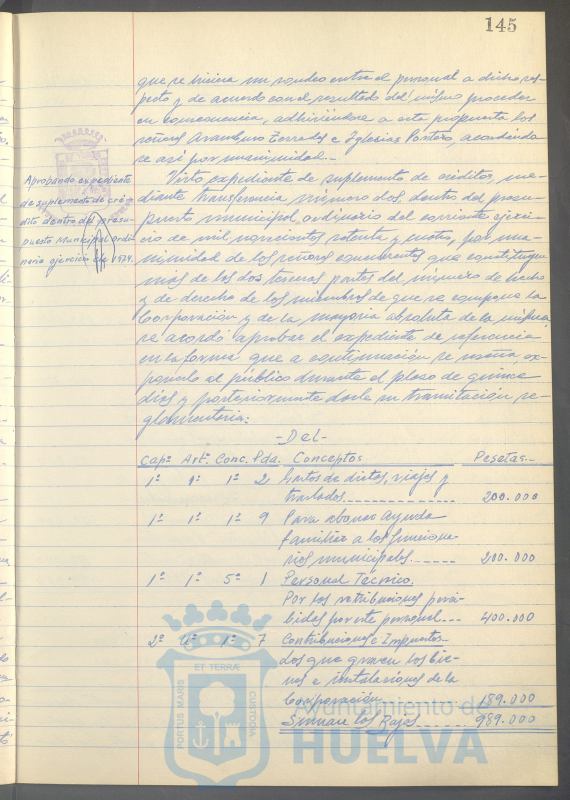 145
que se inicie un sondeo entre el personal a dicho res-
pecto y de acuerdo con el resultado del mismo proceder
en consecuencia, adhiriéndose a esta propuesta los
señores Aramburo Terrades e Iglesias Pontero, acordándo
se así por unanimidad.-
Aprobando expediente
de suplemento de cré-
dito dentro del presu-
puesto Municipal ordi
nario ejercicio de 1974.
Visto expediente de suplemento de créditos, me-
diante transferencia número dos, dentro del presu-
puesto municipal ordinario del corriente ejerci-
cio de mil novecientos setenta y cuatro, por una-
nimidad de los señores concurrentes que constituyen
más de las dos terceras partes del número de hecho
y de derecho de los miembros de que se compone la
Corporación y de la mayoría absoluta de la misma,
se acordó aprobar el expediente de referencia
en la forma que a continuación se reseña ex-
ponerlo al público durante el plazo de quince
días y posteriormente darle su tramitación re-
glamentaria:
-Del-
Capº Artº Conc. Pda. Conceptos Pesetas.-
1º 1º 1º 2 Gastos de dietas, viajes y
traslados 200.000
1º 1º 1º 9 Para abonar Ayuda
familiar a los funciona-
rios municipales 200.000
1º 1º 5º 1 Personal Técnico.
Por las retribuciones perci-
bidas por este personal 400.000
2º 1º 7 Contribuciones e Impuestos
Los que graven los bie-
nes e instalaciones de la
Corporación 189.000
Suman las Bajas 989.000
ET TERRÆ
PORTUS MARIS
CUSTODIA
Ayuntamiento de
HUELVA